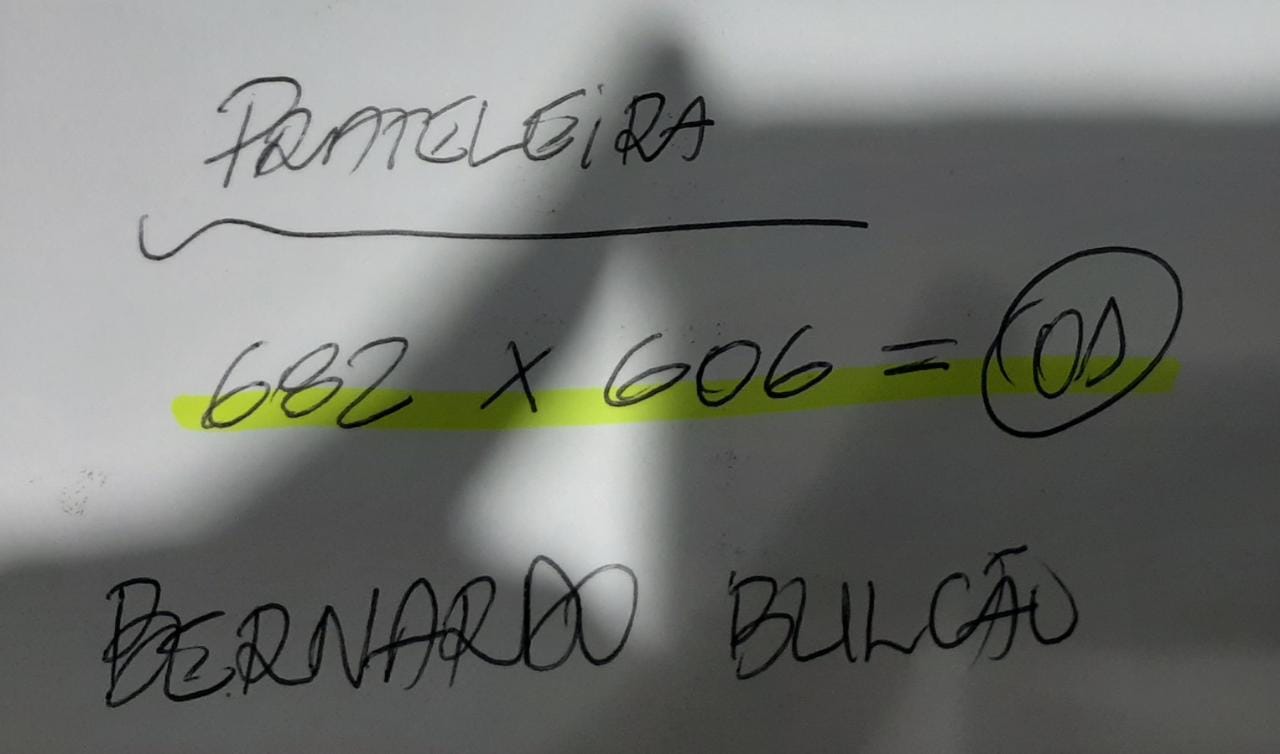 PRATELEIRA
682 X 606 = 01
BERNARDO BULCÃO